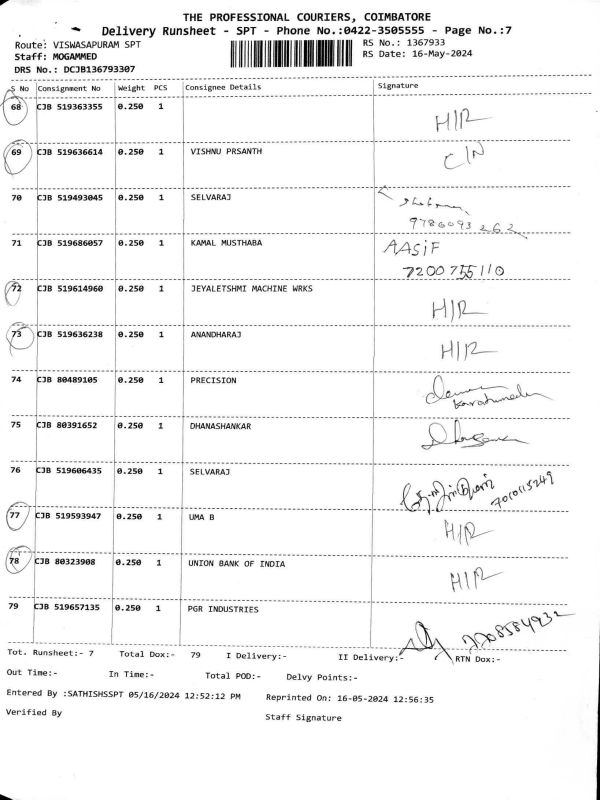 THE PROFESSIONAL COURIERS, COIMBATORE
Delivery Runsheet - SPT - Phone No.:0422-3505555 - Page No.:7
Route: VISWASAPURAM SPT RS No.: 1367933
Staff: MOGAMMED RS Date: 16-May-2024
DRS No.: DCJB136793307
S No Consignment No Weight PCS Consignee Details Signature
68 CJB 519363355 0.250 1 H/R
69 CJB 519636614 0.250 1 VISHNU PRSANTH C/N
70 CJB 519493045 0.250 1 SELVARAJ
9786093262
71 CJB 519686057 0.250 1 KAMAL MUSTHABA AASiF
7200755110
72 CJB 519614960 0.250 1 JEYALETSHMI MACHINE WRKS H/R
73 CJB 519636238 0.250 1 ANANDHARAJ H/R
74 CJB 80489105 0.250 1 PRECISION
75 CJB 80391652 0.250 1 DHANASHANKAR
76 CJB 519606435 0.250 1 SELVARAJ 7010115249
77 CJB 519593947 0.250 1 UMA B H/R
78 CJB 80323908 0.250 1 UNION BANK OF INDIA H/R
79 CJB 519657135 0.250 1 PGR INDUSTRIES
Tot. Runsheet:- 7 Total Dox:- 79 I Delivery:- II Delivery:- RTN Dox:-
Out Time:- In Time:- Total POD:- Delvy Points:-
Entered By :SATHISHSSPT 05/16/2024 12:52:12 PM Reprinted On: 16-05-2024 12:56:35
Verified By Staff Signature